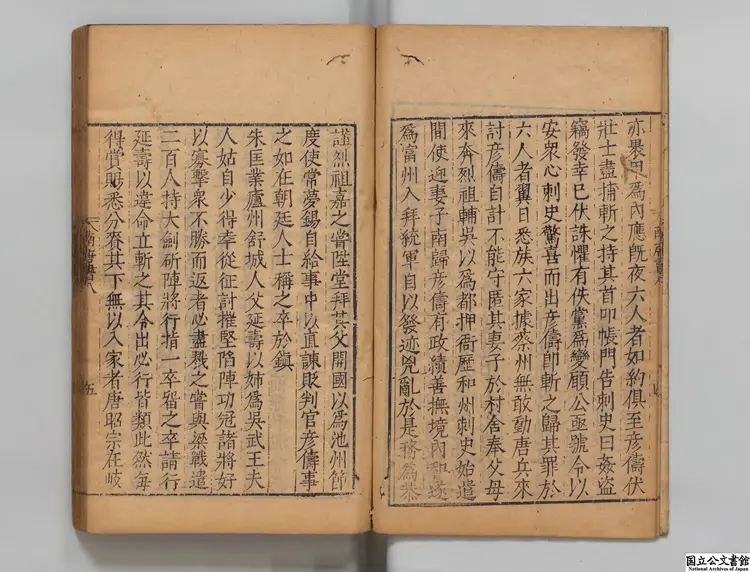 亦㬥甲爲內應旣夜六人者如約俱至彦儔伏
壯士盡捕斬之持其首叩帳門告刺史曰姦盗
竊發幸已伏誅懼有佚黨爲變願公亟號令以
安衆心刺史驚喜而出彦儔卽斬之歸其罪於
六人者翼日悉族六家據蔡州無敢動唐兵來
討彦儔自計不能守匿其妻子於村舍奉父母
來奔烈祖輔吳以爲都押衙歷和州刺史始遣
間使迎妻子南歸彦儔有政績善撫境內和遂
爲富州入拜統軍自以發迹兇亂於是務爲恭
謹烈祖嘉之嘗陞堂拜其父開國以爲池州節
度使常夢錫自給事中以直諫貶判官彦儔事
之如在朝廷人士稱之卒於鎮
朱匡業廬州舒城人父延壽以姊爲吳武王夫
人姑自少得幸從征討摧堅陷陣功冠諸將好
以寡擊衆不勝而返者必盡戮之嘗與梁戰遣
二百人持大劒斫陣將行指一卒留之卒請行
延壽以違命立斬之其令出必行皆類此然每
得賞賜悉分賚其下無以入家者唐昭宗在岐
南唐書八
五
国立公文書館
National Archives of Japan